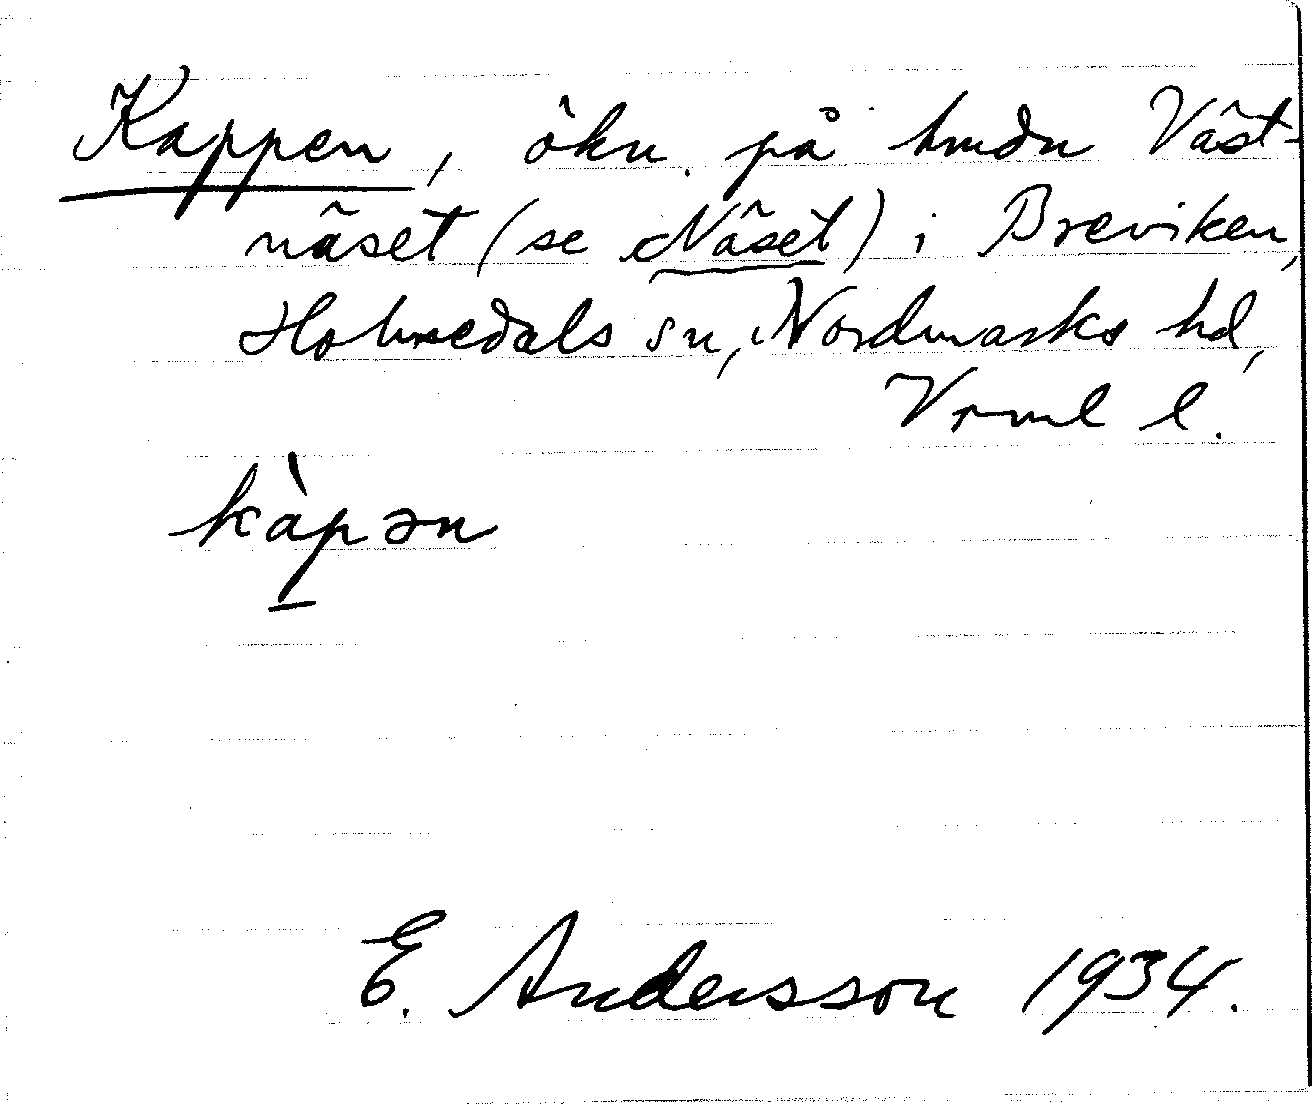 Kappen, ökn. på hmdn Väst-
näset (se Näset) i Breviken,
Holmedals sn, Nordmarks hd,
Vrml l.
kàpən
E. Andersson 1934.